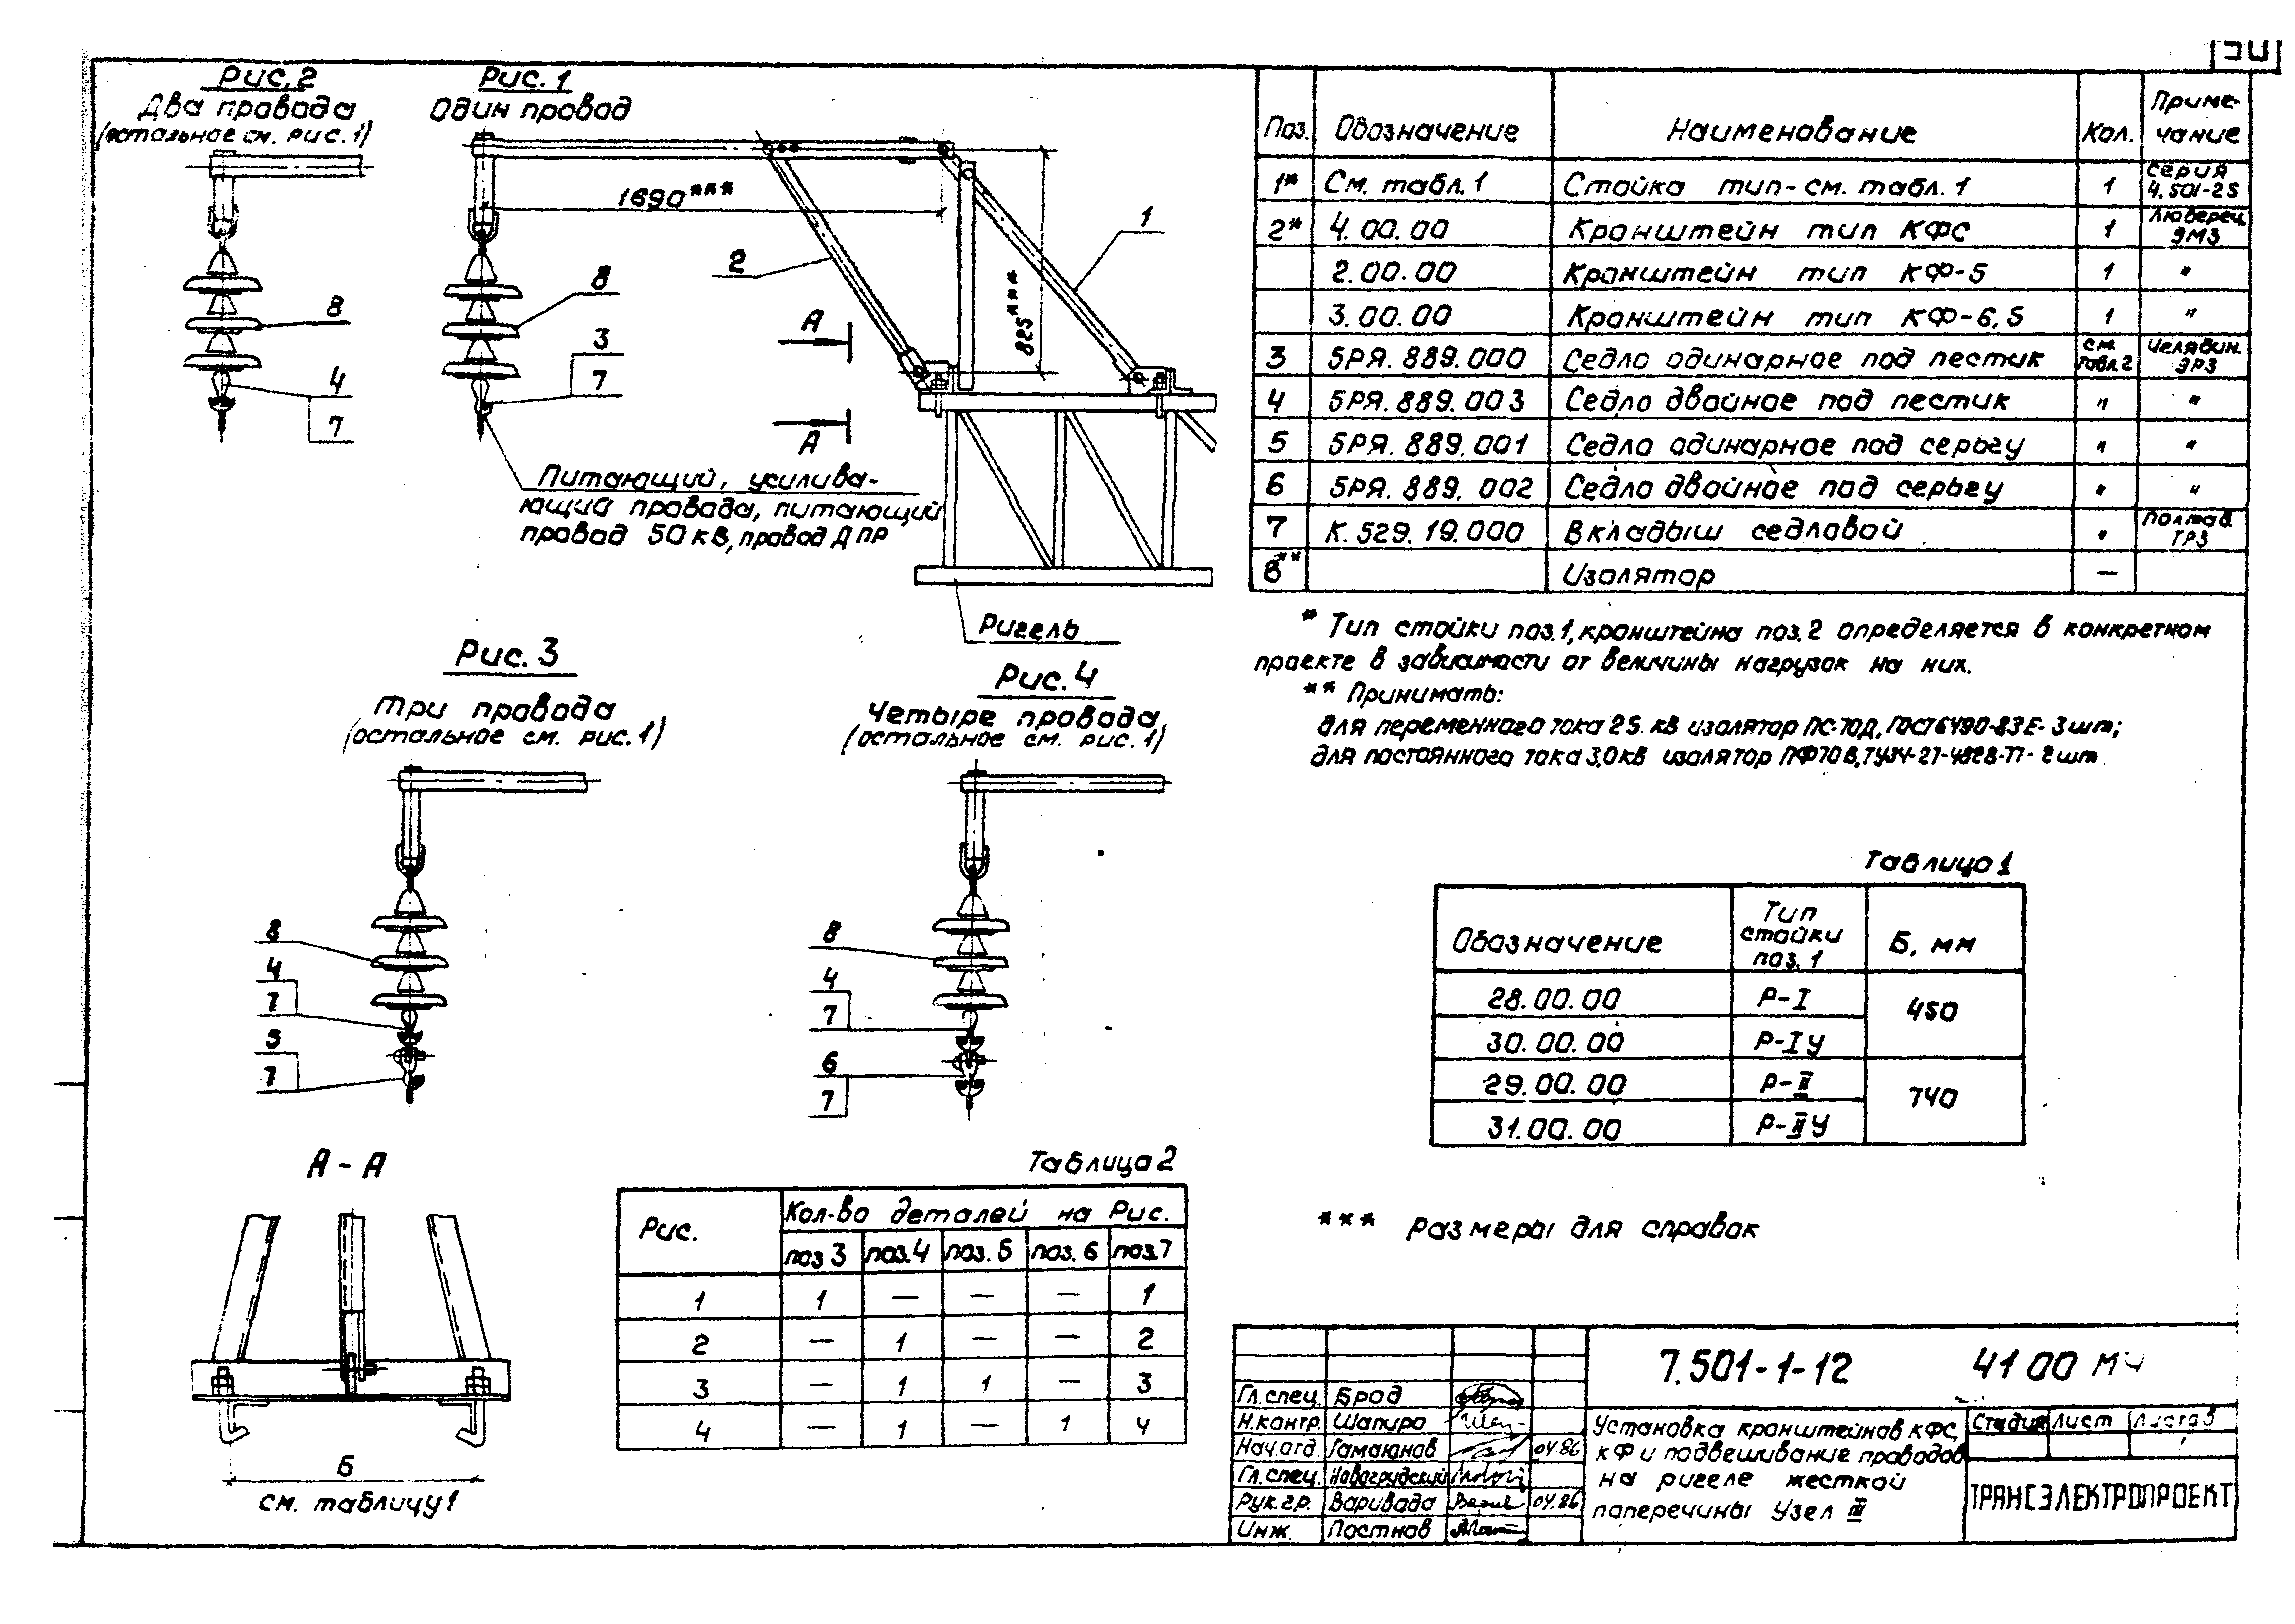 50
Рис. 2
Два провода
(остальное см. рис. 1)
Рис. 1
Один провод
1690***
825***
1
2
8
3
7
8
4
7
А
А
Питающий, усилива-
ющий провода, питающий
провод 50 кВ, провод ДПР
Ригель
Поз. Обозначение Наименование Кол. Приме-
чание
1* См. табл. 1 Стойка тип - см. табл. 1 1 серия
4.501-25
2* 4.00.00 Кронштейн тип КФС 1 Люберец
ЭМЗ
2.00.00 Кронштейн тип КФ-5 1 "
3.00.00 Кронштейн тип КФ-6,5 1 "
3 5РЯ.889.000 Седло одинарное под пестик см.
табл 2 Челябин.
ЭРЗ
4 5РЯ.889.003 Седло двойное под пестик " "
5 5РЯ.889.001 Седло одинарное под серьгу " "
6 5РЯ.889.002 Седло двойное под серьгу " "
7 К.529.19.000 Вкладыш седловой " Полтав.
ТРЗ
8** Изолятор —
* Тип стойки поз.1, кронштейна поз. 2 определяется в конкретном
проекте в зависимости от величины нагрузок на них.
** Принимать:
для переменного тока 25 кВ изолятор ПС-70Д, ГОСТ6490-83Е- 3 шт;
для постоянного тока 3,0 кВ изолятор ПФ70В, ТУ34-27-4828-77- 2 шт.
Рис. 3
Три провода
(остальное см. рис. 1)
8
4
7
5
7
Рис. 4
Четыре провода
(остальное см. рис. 1)
8
4
7
6
7
Таблица 1
Обозначение Тип
стойки
поз. 1 Б, мм
28.00.00 Р-I 450
30.00.00 Р-IУ
29.00.00 Р-II 740
31.00.00 Р-IIУ
А - А
Б
см. таблицу 1
Таблица 2
Рис. Кол-во деталей на Рис.
поз 3 поз.4 поз. 5 поз. 6 поз.7
1 1 — — — 1
2 — 1 — — 2
3 — 1 1 — 3
4 — 1 — 1 4
*** Размеры для справок
7.501-1-12 4100 МЧ
Гл. спец. Брод
Н.контр. Шапиро
Нач.отд. Гамаюнов 04.86
Гл. спец. Новогрудский
Рук. гр. Варивода 04.86
Инж. Постнов
Установка кронштейнов КФС,
КФ и подвешивание проводов
на ригеле жесткой
поперечины Узел III
Стадия Лист Листов
ТРАНСЭЛЕКТРОПРОЕКТ